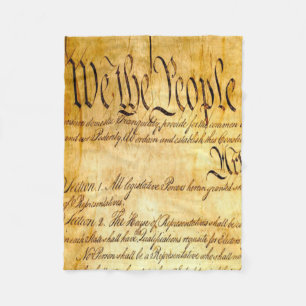 We the People
insure domestic Tranquility, provide for the common
and our Posterity, do ordain and establish this Constitu
Art
Section. 1. All legislative Powers herein granted sh
of Representatives.
Section. 2. The House of Representatives shall be co
in each State shall have the Qualifications requisite for Elector
No Person shall be a Representative who shall no